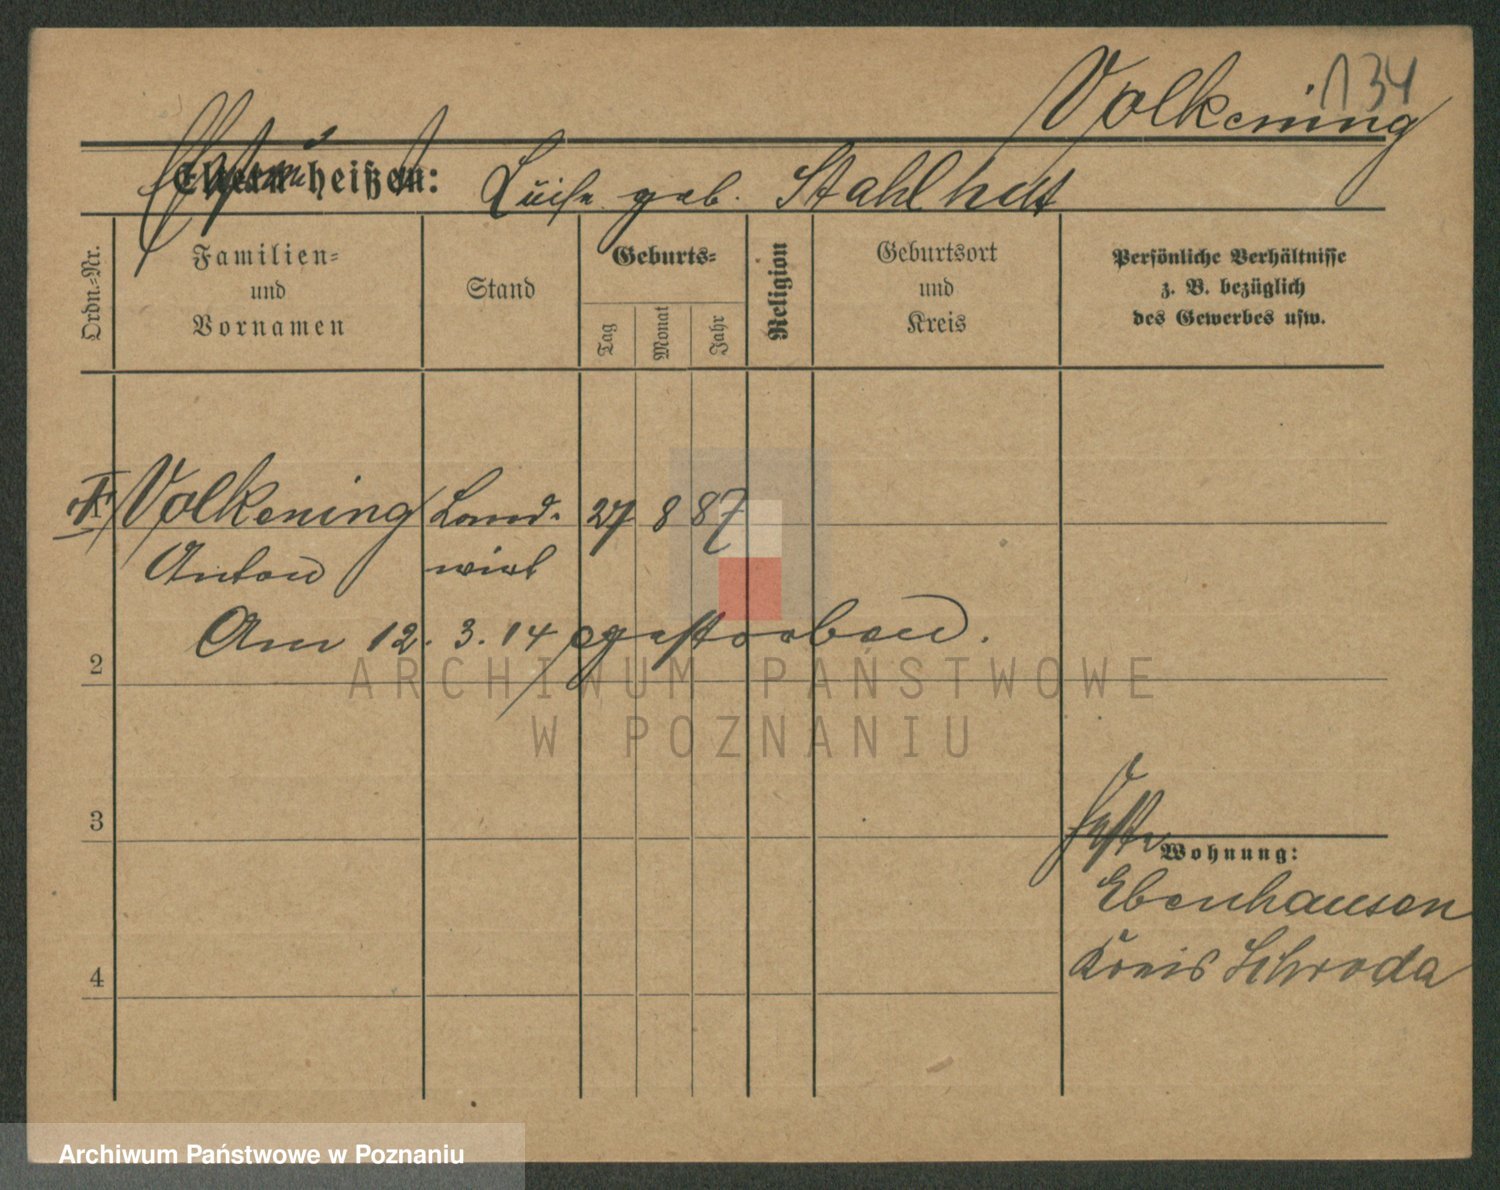 Volkening
134
Eltern heißen: Luise geb. Stahlhut
Ordn.-Nr.
Familien- und Vornamen
Stand
Geburts-
Tag
Monat
Jahr
Religion
Geburtsort und Kreis
Persönliche Verhältnisse
z. B. bezüglich
des Gewerbes usw.
Volkening Land- 27 8 87
Anton wirt
Am 12. 3. 14 gestorben.
2
3
4
Wohnung:
Ebenhausen
Kreis Schroda
ARCHIWUM PAŃSTWOWE
W POZNANIU
Archiwum Państwowe w Poznaniu